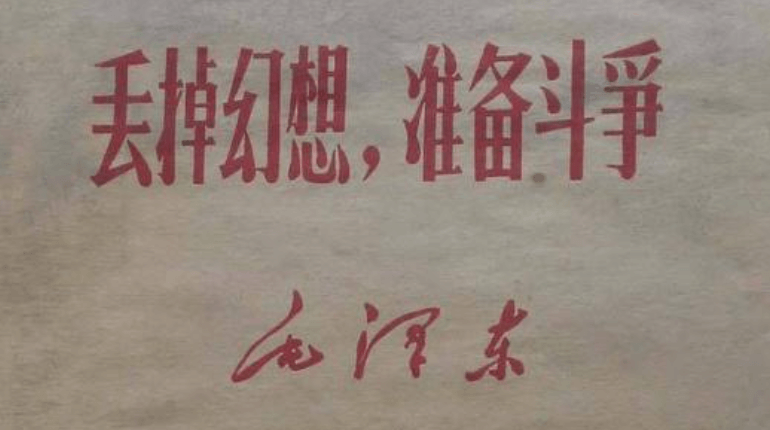 丢掉幻想，准备斗爭
毛泽东